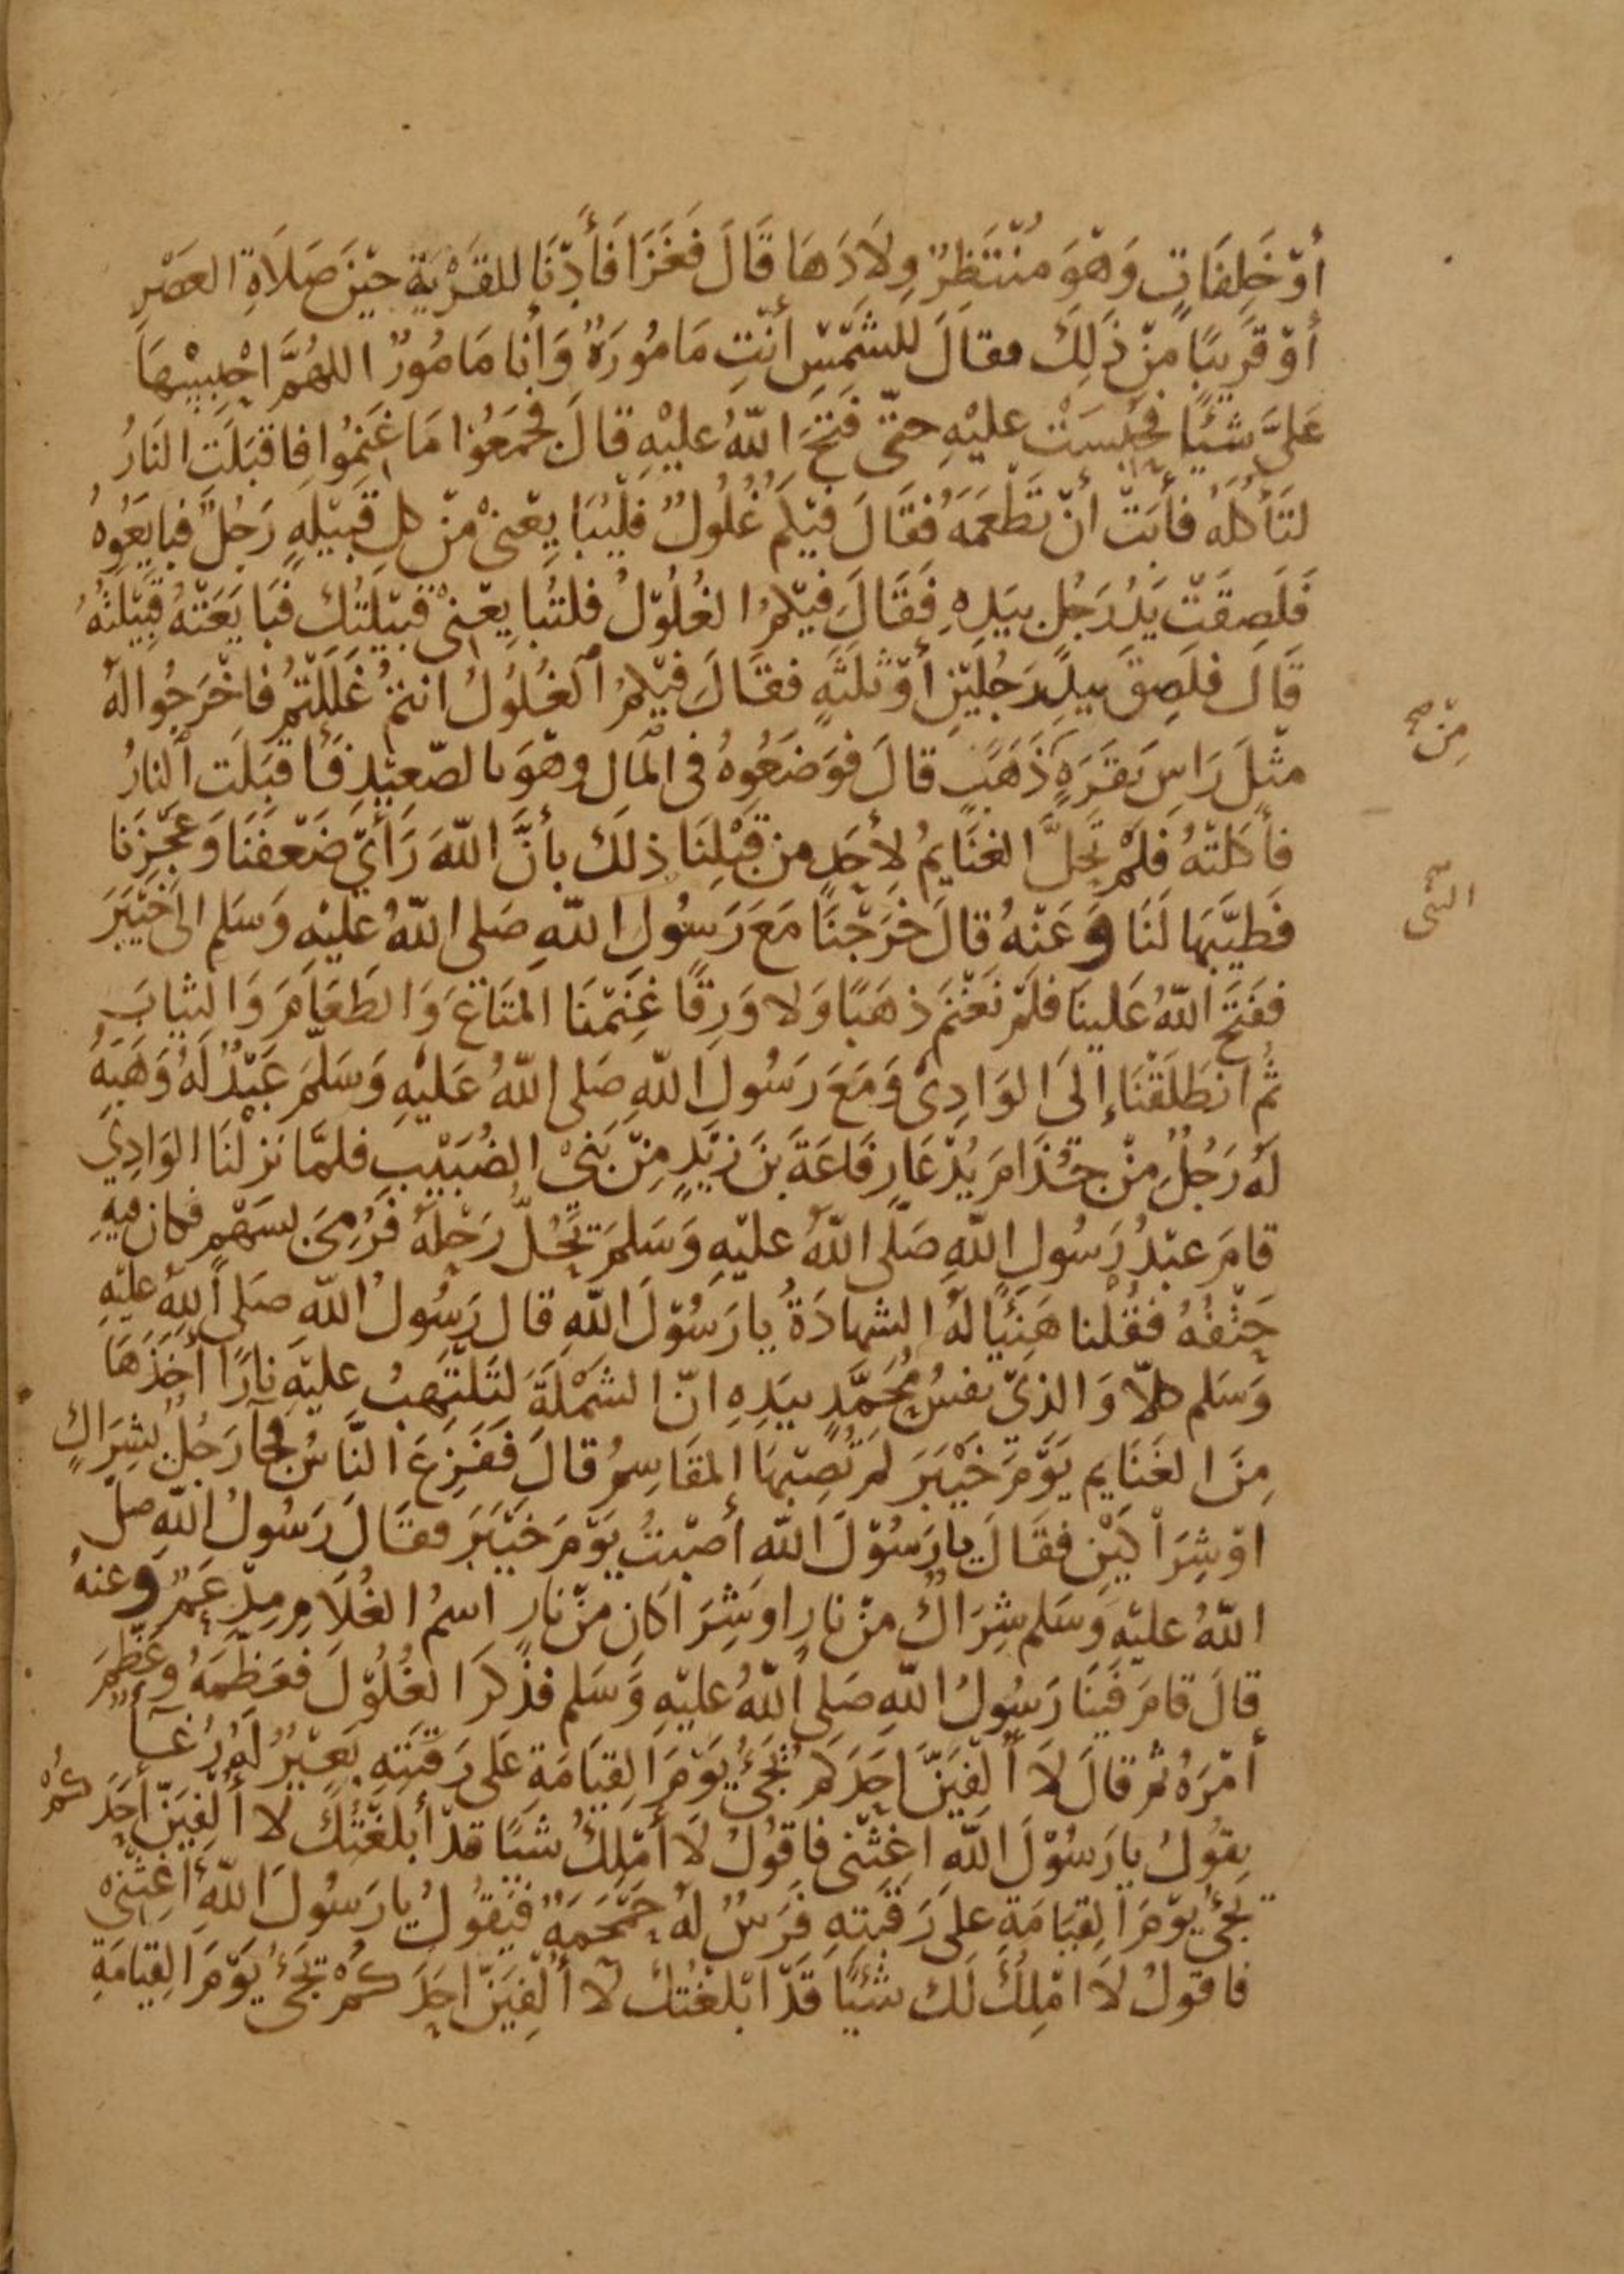 أَوْ خَلِفَاتٍ وَهْوَ مُنْتَظِرٌ وِلَادَهَا قَالَ فَغَزَا فَأَدْنَا للقَرْيَةِ حِيْنَ صَلَاةِ العَصْرِ
أَوْ قَرِيبًا مِنْ ذَلِكَ فقَالَ للشَّمْسِ أنْتِ مَامُورَةٌ وَأنا مَامُورٌ اللهُمَّ احْبِسْهَا
عَلَيَّ شَيْئًا فحُبِسَتْ عليْهِ حتّى فَتَحَ اللّهُ عليْهِ قالَ فجَمَعُوا مَا غَنِمُوا فاقبَلَتِ النَارُ
لتَأكُلَهُ فأَبَتْ أنْ تَطْعَمَهُ فَقَالَ فيْكم غُلُولٌ فليُبَايِعْنِيْ مِنْ كلِ قَبِيْلةٍ رَجُلٌ فبايَعُوهُ
فَلَصِقَتْ يَدُ رَجُلٍ بيَدِهِ فَقَالَ فيْكُمُ الغُلُوْلُ فلتُبَايِعْنِيْ قَبيْلَتُكَ فبَايَعَتْهُ قَبِيْلَتُهُ
قَالَ فلَصِقَ بيدِ رَجُلَيْنِ أَوْ ثَلَثَةٍ فقَالَ فيْكُمُ الغُلُولُ انتمْ غَلَلْتُمْ فاخْرَجُوا لهُ
مثْلَ رَاسِ بَقَرَةٍ ذَهَبٍ قالَ فوَضَعُوهُ في المَالِ وهْوَ بالصّعِيْدِ فَأقبَلَت النارُ
مِنْ صح
فأكَلتْهُ فلَمْ تحِلَّ الغنَايمُ لأحَدٍ من قَبْلِنَا ذلكَ بأنَّ اللّهَ رَأيْ ضَعْفَنَا وَعَجْزَنَا
فَطيَّبَهَا لَنَا وَعَنْهُ قالَ خَرَجْنَا مَعَ رَسُولِ اللّهِ صَلى اللّهُ عليْهِ وَسَلم الىَ خَيْبَرَ
النبي
ففَتَحَ اللّهُ عَلينَا فلَمْ نَغْنَم ذهَبًا وَلا وَرِقًا غنَِمْنَا المتَاعَ وَالطَعَامَ وَالثيابَ
ثُم انطَلَقْنَا إلىَ الوَادِيْ وَمَعَ رَسُولِ اللّهِ صَلى اللّهُ عَليْهِ وَسَلَّمَ عَبْدٌ لَهُ وَهَبَهُ
لهُ رَجُلٌ مِنْ جُذَامَ يُدْعَا رِفَاعَةَ بنَ زَيْدٍ مِنْ بَنِيْ الضُبَيْبِ فلمَّا نَزلْنَا الوَادِيْ
قامَ عبْدُ رَسُولِ اللّهِ صَلَّى اللّهُ عليْهِ وَسَلمَ يَحُلُّ رَحْلَهُ فَرُمِىَ بسَهْمٍ فكان فيهِ
حَتْفُهُ فقُلْنا هَنِيًا لهُ الشهادَةُ يا رَسُوْلَ اللّهِ قال رَسُولُ اللّه صَلى اللهُ عليْهِ
وَسَلم كلاّ وَالذيْ نفسُ مُحَمَّدٍ بيَدِهِ انّ الشمْلَةَ لتَلْتَهِبُ عليْهِ نارًا أخَذَهَا
مِنَ الغَنَايم يَوْمَ خَيْبَرَ لم تُصِبْهَا المقَاسِمُ قالَ ففَزِعَ النَّاسُ فجآ رَجُلٌ بشِرَاكٍ
اوْ شِرَاكَيْنِ فقَالَ يا رَسُوْلَ اللّهِ أصَبْتُ يَوْمَ خيْبَرَ فقَالَ رَسُولُ اللّهِ صلى
اللّهُ عليْهِ وَسَلم شِرَاكٌ منْ نارٍ او شِرَاكانِ منْ نارٍ اسمُ الغُلَامِ مِدْعَمٌ وَعنهُ
قالَ قامَ فيْنَا رَسُولُ اللّهِ صَلى اللّهُ عليْهِ وَسَلم فذَكرَ الغُلُوْلَ فعَظّمَهُ وعَظّمَ
أمْرَهُ ثم قالَ لَا أُلْفِيَنَّ احَدَكم يَجَىُٔ يَوْمَ القِيَامَةِ عَلى رَقَبَتِهِ بَعِيْرٌ لهُ رُغَآٌ
يقُولُ يا رَسُوْلَ اللّهِ اغِثْنى فاقُوْلُ لَا أمْلِكُ شيًا قدْ أبلَغْتُكَ لا أُلْفِيَنَّ أحَدَكُمْ
يجَىُٔ يوْمَ القِيَامَةِ على رَقَبَتِهِ فَرَسٌ لهُ حَمْحَمَةٌ فَيَقُولُ يا رَسُولَ اللّهِ أغِثْني
فاقولُ لَا امْلِكُ لَكَ شَيْئًا قَدْ ابْلَغْتُكَ لَا أُلْفِيَنَّ احَدَكُمْ يَجَىُٔ يَوْمَ القِيَامَةِ